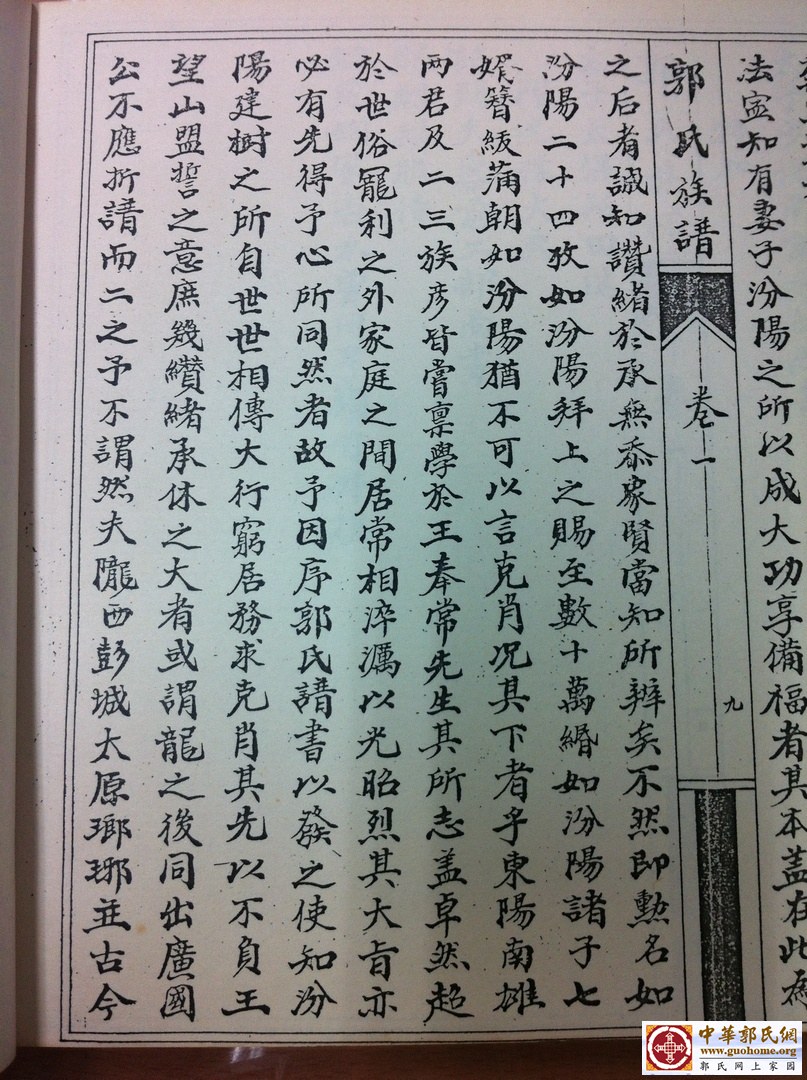 法寔知有妻子汾陽之所以成大功享備福者其本盖在此為
郭氏族譜 卷一 九
之后者誠知讚緒於承無忝象賢當知所辨矣不然即勲名如
汾陽二十四孜如汾陽拜上之賜至數十萬緡如汾陽諸子七
壻簪紱滿朝如汾陽猶不可以言克肖况其下者乎東陽南雄
两君及二三族彦皆嘗禀學於王奉常先生其所志盖卓然超
於世俗寵利之外家庭之間居常相淬濿以光昭烈其大旨亦
必有先得予心所同然者故予因序郭氏譜書以發之使知汾
陽建樹之所自世世相傳大行窮居務求克肖其先以不負王
望山盟誓之意庶幾纘緒承休之大者或謂龍之後同出廣國
公不應折譜而二之予不謂然夫隴西彭城太原瑯琊並古今
中華郭氏網
www.guohome.org
郭氏网上家园